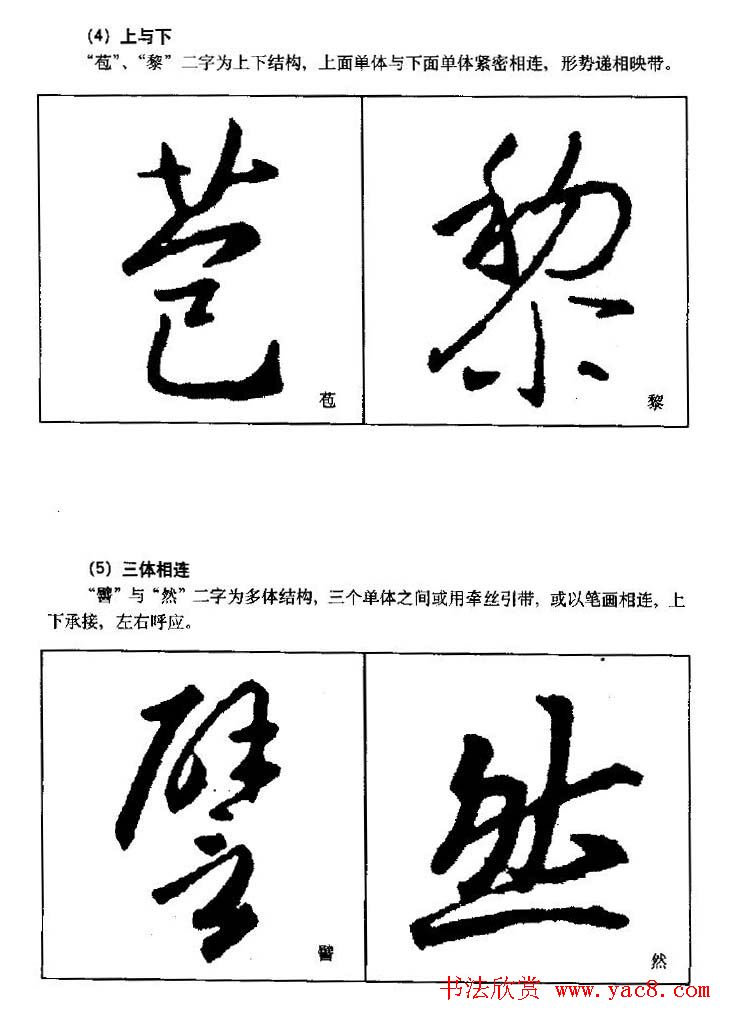 (4) 上与下
“苞”、“黎” 二字为上下结构，上面单体与下面单体紧密相连，形势递相映带。
苞 黎
苞 黎
(5) 三体相连
“譬” 与 “然” 二字为多体结构，三个单体之间或用牵丝引带，或以笔画相连，上
下承接，左右呼应。
譬 然
譬 然
书法欣赏 www.yac8.com